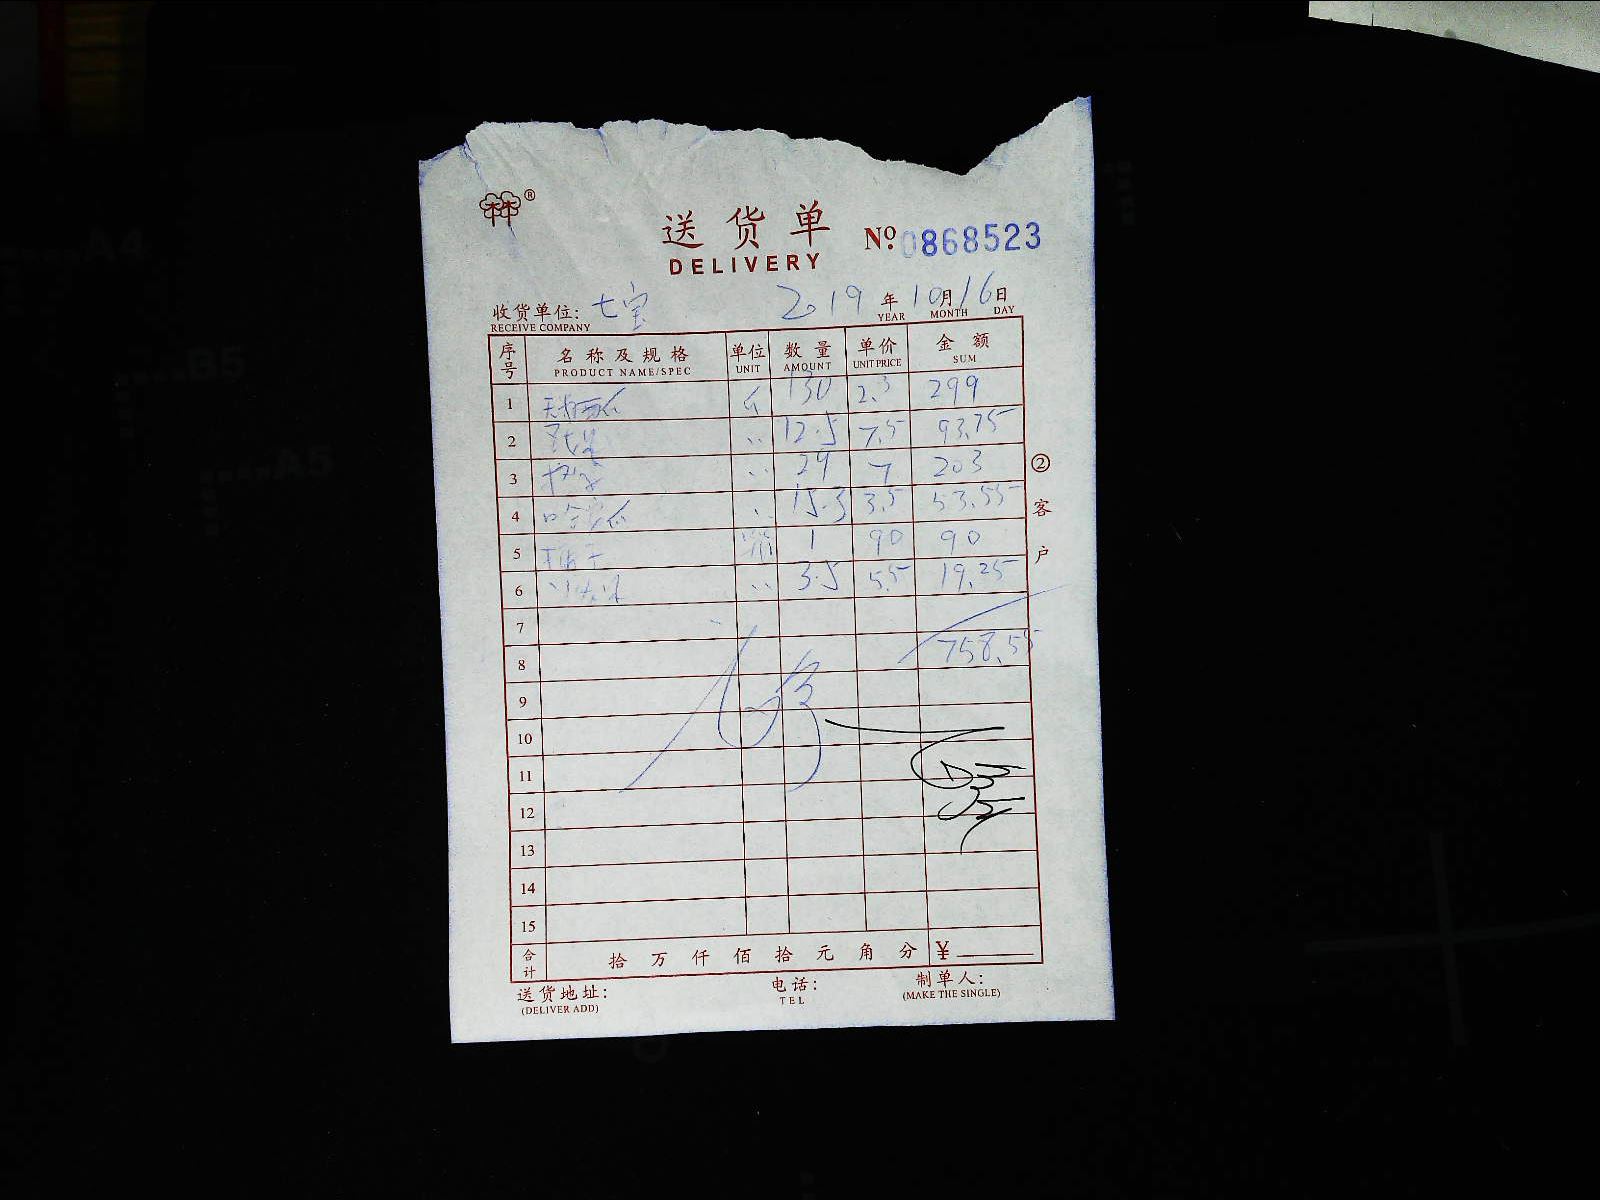 送货单
DELIVERY
№ 0868523
收货单位: 七宝 2019 年 10 月 16 日
RECEIVE COMPANY YEAR MONTH DAY
序号 名称及规格 单位 数量 单价 金额
PRODUCT NAME/SPEC UNIT AMOUNT UNIT PRICE SUM
1 斤 130 2.3 299
2 12.5 7.5 93.75
3 29 7 203
4 哈密瓜 15.3 3.5 53.55
5 1 90 90
6 3.5 5.5 19.25
7
8 758.55
9
10
11
12
13
14
15
合计 拾 万 仟 佰 拾 元 角 分 ¥
② 客户
送货地址: 电话: 制单人:
(DELIVER ADD) TEL (MAKE THE SINGLE)
A4
B5
A5